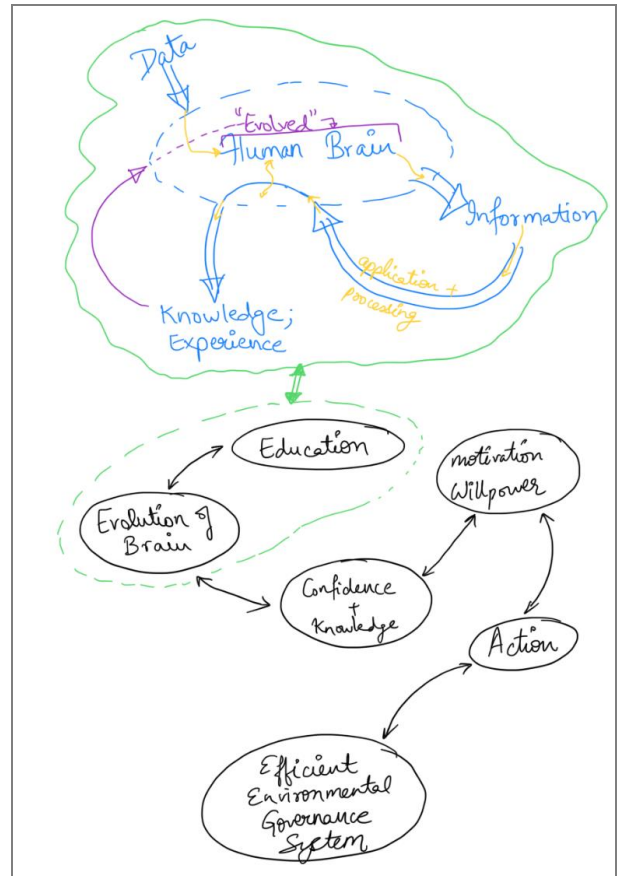 Data
"Evolved"
Human Brain
Information
application +
processing
Knowledge;
Experience
Education
motivation
Willpower
Evolution of
Brain
Confidence
+
Knowledge
Action
Efficient
Environmental
Governance
System